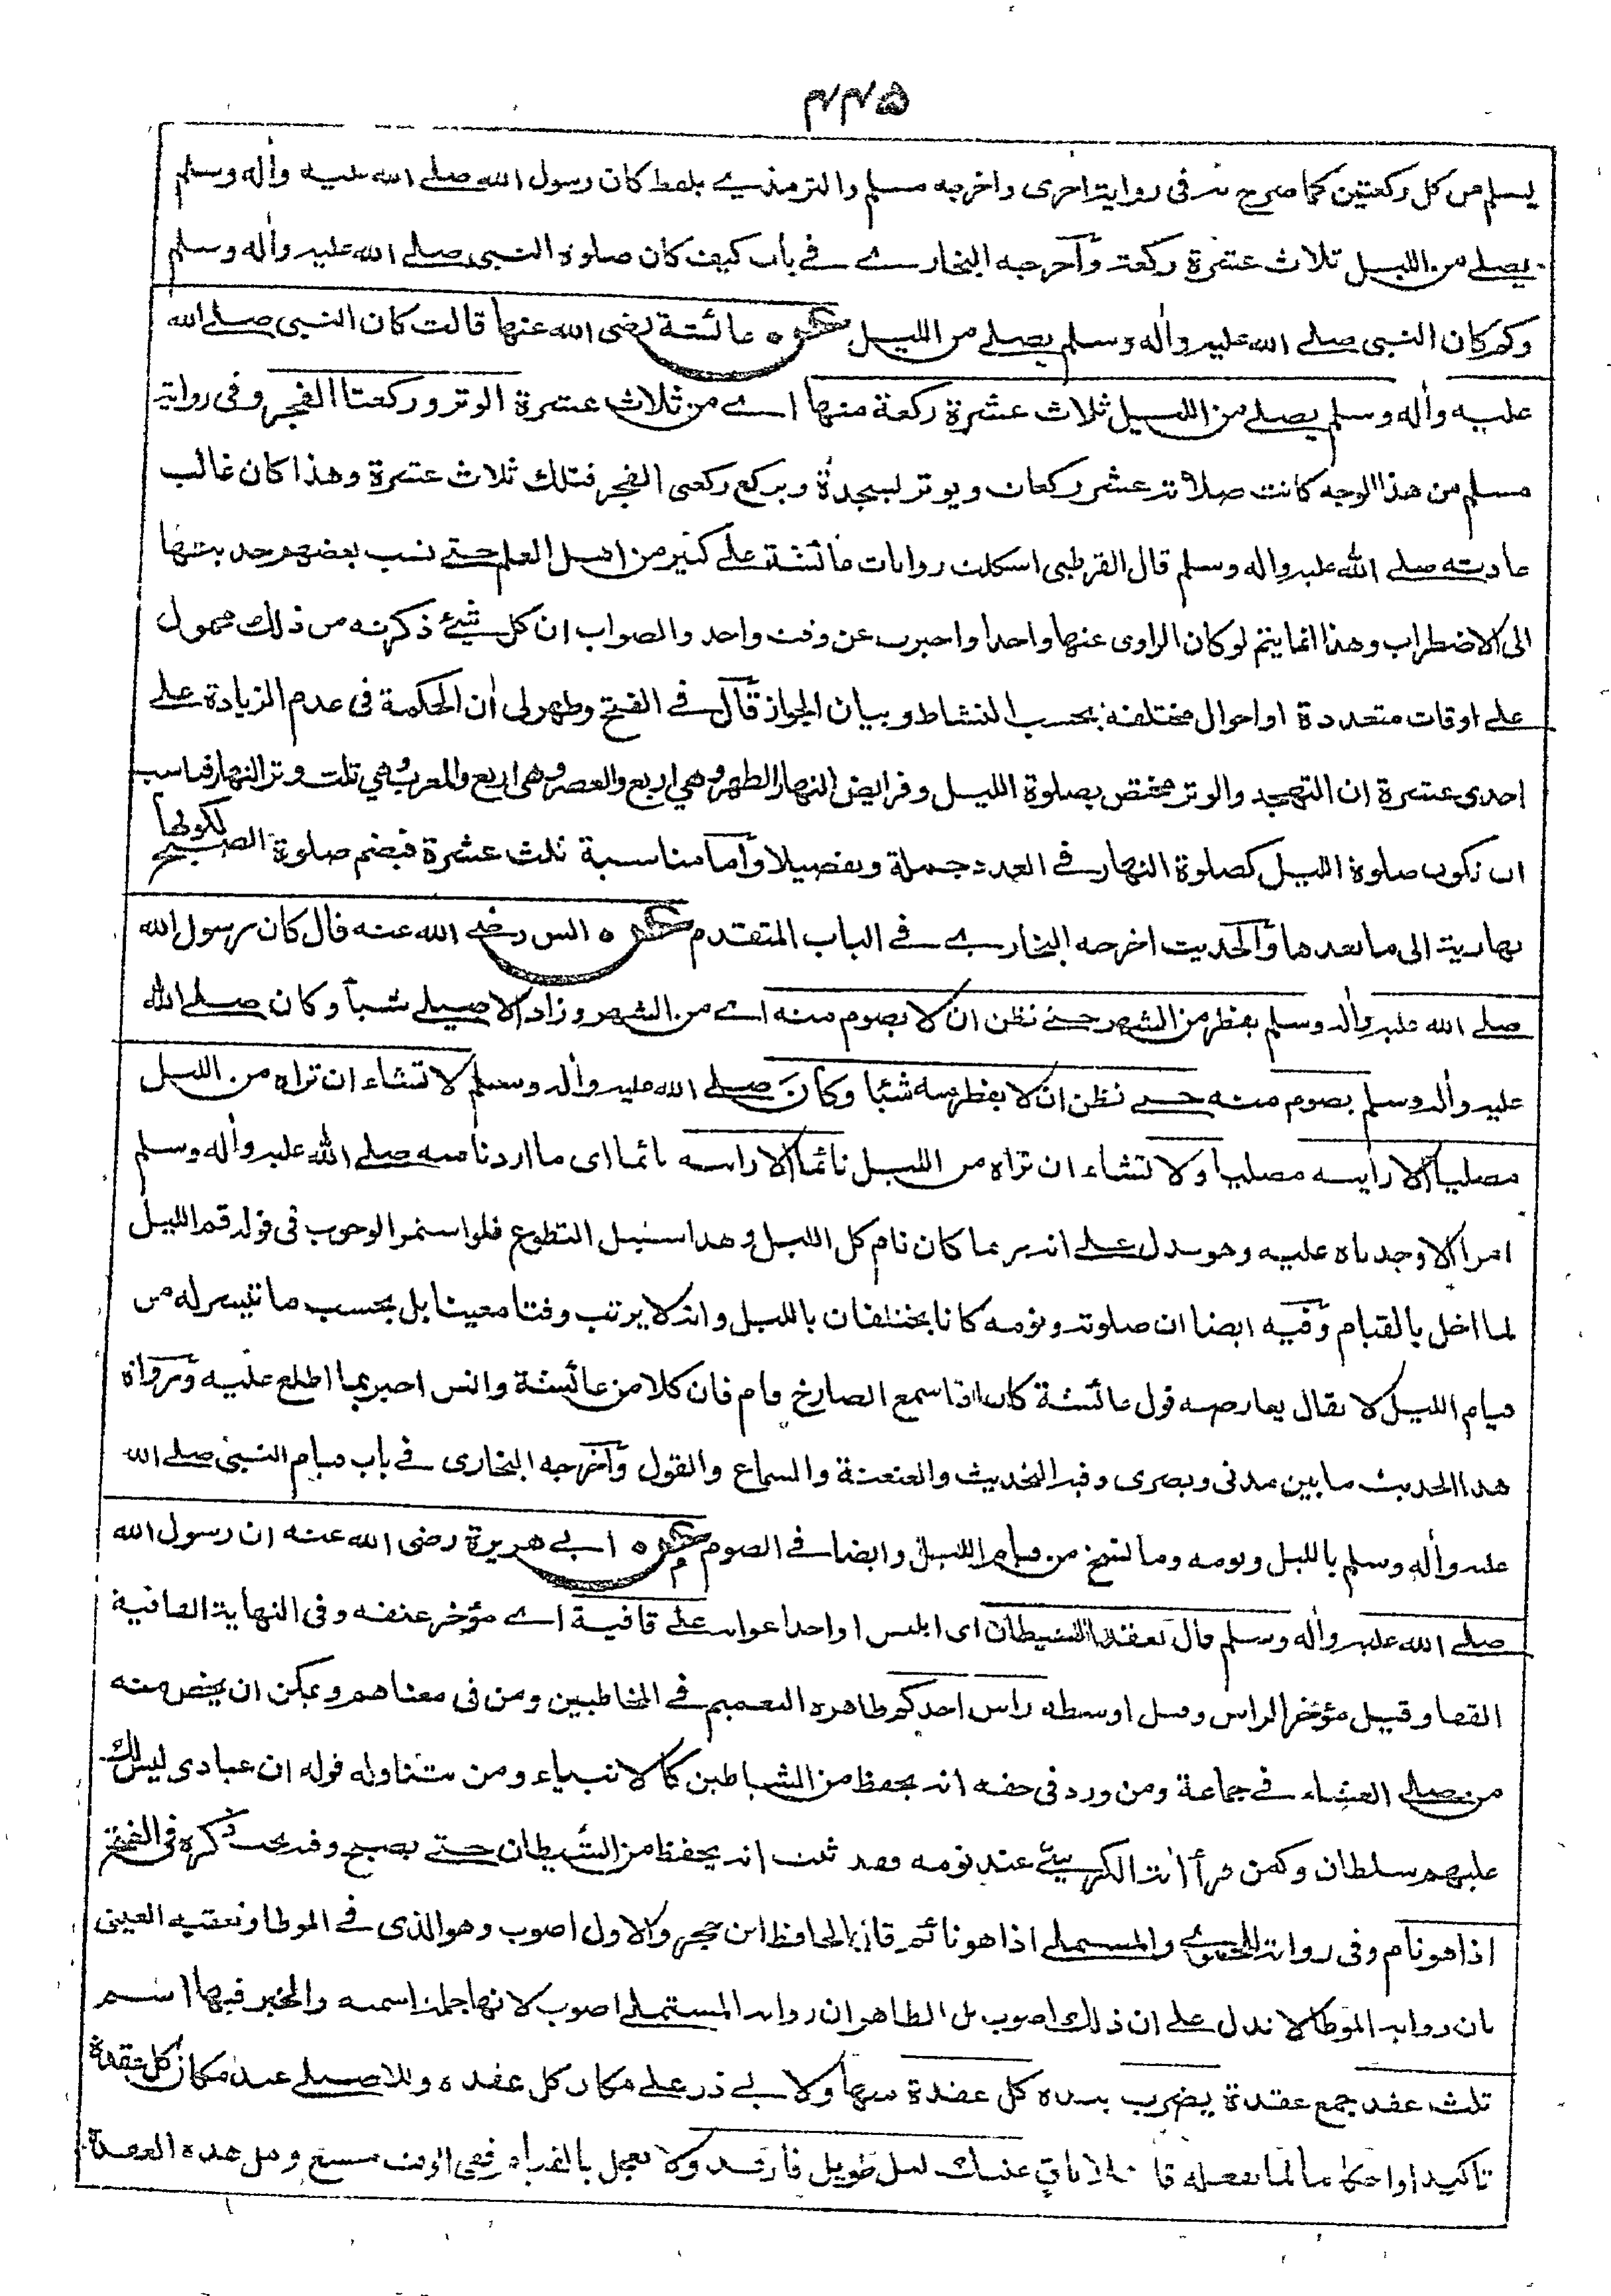 ۴۴۵
يسلم من كل ركعتين كما صرح به فى رواية اخرى واخرجه مسلم والترمذي بلفظ كان رسول الله صلى الله عليه وأله وسلم
يصلے من الليل ثلاث عشرة ركعة وآخرجه البخارے فے باب كيف كان صلوة النبى صلے الله عليه وأله وسلم
وكم كان النبى صلے الله عليه وأله وسلم يصلے من الليل عن عائشة رضى الله عنها قالت كان النبى صلے الله
عليه وأله وسلم يصلے من الليل ثلاث عشرة ركعة منها اے من ثلاث عشرة الوتر وركعتا الفجر وفى رواية
مسلم من هذا الوجه كانت صلاته عشر ركعات ويوتر بسجدة ويركع ركعتى الفجر فتلك ثلاث عشرة وهذا كان غالب
عادته صلے الله عليه واله وسلم قال القرطبى اشكلت روايات عائشة على كثير من اهل العلم حتے نسب بعضهم حديثها
الى الاضطراب وهذا انما يتم لو كان الراوى عنها واحدا واخبرت عن وقت واحد والصواب ان كل شيئ ذكرته من ذلك محمول
علے اوقات متعددة او احوال مختلفة بحسب النشاط وبيان الجواز قال فے الفتح وظهر لى أن الحكمة فى عدم الزيادة علے
احدى عشرة ان التهجد والوتر مختص بصلوة الليل وفرايض النهار الظهر وهي اربع والعصر وهى اربع والمغرب وهي ثلث وتر النهار فناسب
ان تكون صلوة الليل كصلوة النهار فے العدد جملة وتفصيلا وأما مناسبة ثلث عشرة فبضم صلوة الصبح لكونها
نهارية الى ما بعدها والحديث اخرجه البخارے فے الباب المتقدم عن انس رضے الله عنه قال كان رسول الله
صلے الله عليه وأله وسلم يفطر من الشهر حتے نظن ان لا يصوم منه اے من الشهر وزاد الاصيلے شيأ وكان صلے الله
عليه وأله وسلم يصوم منه حتے نظن ان لا يفطر منه شيئا وكان صلے الله عليه وأله وسلم لا تشاء ان تراه من الليل
مصليا الا رأيته مصليا ولا تشاء ان تراه من الليل نائما الا رايته نائما اى ما اردنا منه صلے الله عليه وأله وسلم
امرا الا وجدناه عليه وهو يدل علے انه ربما كان نام كل الليل وهذا سبيل التطوع فلو استمر الوجوب فى قوله قم الليل
لما اخل بالقيام وفيه ايضا ان صلوته ونومه كانا يختلفان بالليل وانه لا يرتب وقتا معينا بل بحسب ما تيسر له من
قيام الليل لا يقال يعارضه قول عائشة كان اذا سمع الصارخ قام فان كلا من عائشة وانس اخبر بما اطلع عليه ورواة
هذا الحديث ما بين مدنى وبصرى وفيه التحديث والعنعنة والسماع والقول وآخرجه البخارى فے باب قيام النبى صلے الله
عليه وأله وسلم بالليل ونومه وما نسخ من قيام الليل وايضا فے الصوم عن ابے هريرة رضى الله عنه ان رسول الله
صلے الله عليه وأله وسلم قال يعقد الشيطان اى ابليس او احد اعوانه علے قافية اے مؤخر عنقه وفى النهاية القافية
القفا وقيل مؤخر الراس وقيل اوسطه راس احدكم ظاهره التعميم فے المخاطبين ومن فى معناهم ويمكن ان يخص منه
من صلے العشاء فے جماعة ومن ورد فى حقه انه يحفظ من الشياطين كالانبياء ومن يتناوله قوله ان عبادى ليس لك
عليهم سلطان وكمن قرأ آية الكرسيّ عند نومه فقد ثبت انه يحفظ من الشيطان حتے يصبح وفيه بحث ذكره فى الفتح
اذا هو نام وفى رواية الحموے والمستملے اذا هو نائم قال الحافظ ابن حجر والاول اصوب وهو الذى فے الموطا وتعقبه العينى
بان رواية الموطا لا تدل علے ان ذلك اصوب بل الظاهر ان رواية المستملے اصوب لانها جملة اسمية والخبر فيها اسم
ثلث عقد جمع عقدة يضرب بيده كل عقدة منها ولابے ذر علے مكان كل عقدة وللاصيلے عند مكان كل عقدة
تاكيدا واحكاما لما يفعله قائلا باق عليك ليل طويل فارقد ولا تعجل بالقيام ففى الوقت متسع وهل هذه العقدة